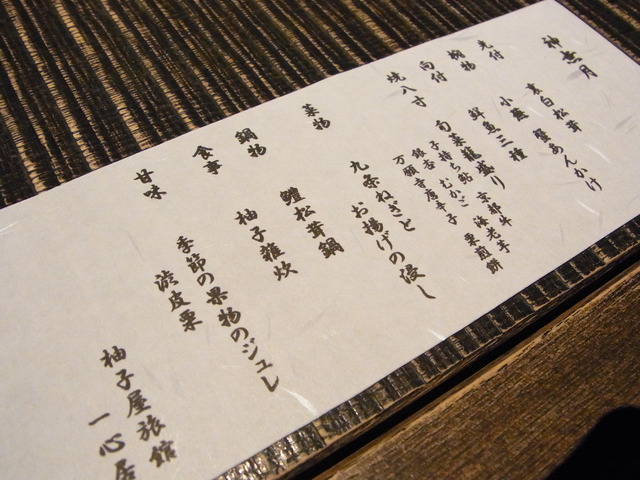 神無月
先付 真白松茸 蟹あんかけ
椀物 小蕪
向付 鮮魚三種
焼八寸 旬菜籠盛り
子持ち鮎 むかご 京都牛 海老芋
銀杏 万願寺唐辛子 栗煎餅
菜物 九条ねぎとお揚げの浸し
鍋物 鱧松茸鍋
食事 柚子雑炊
甘味 季節の果物のジュレ
渋皮栗
柚子屋旅館
一心居